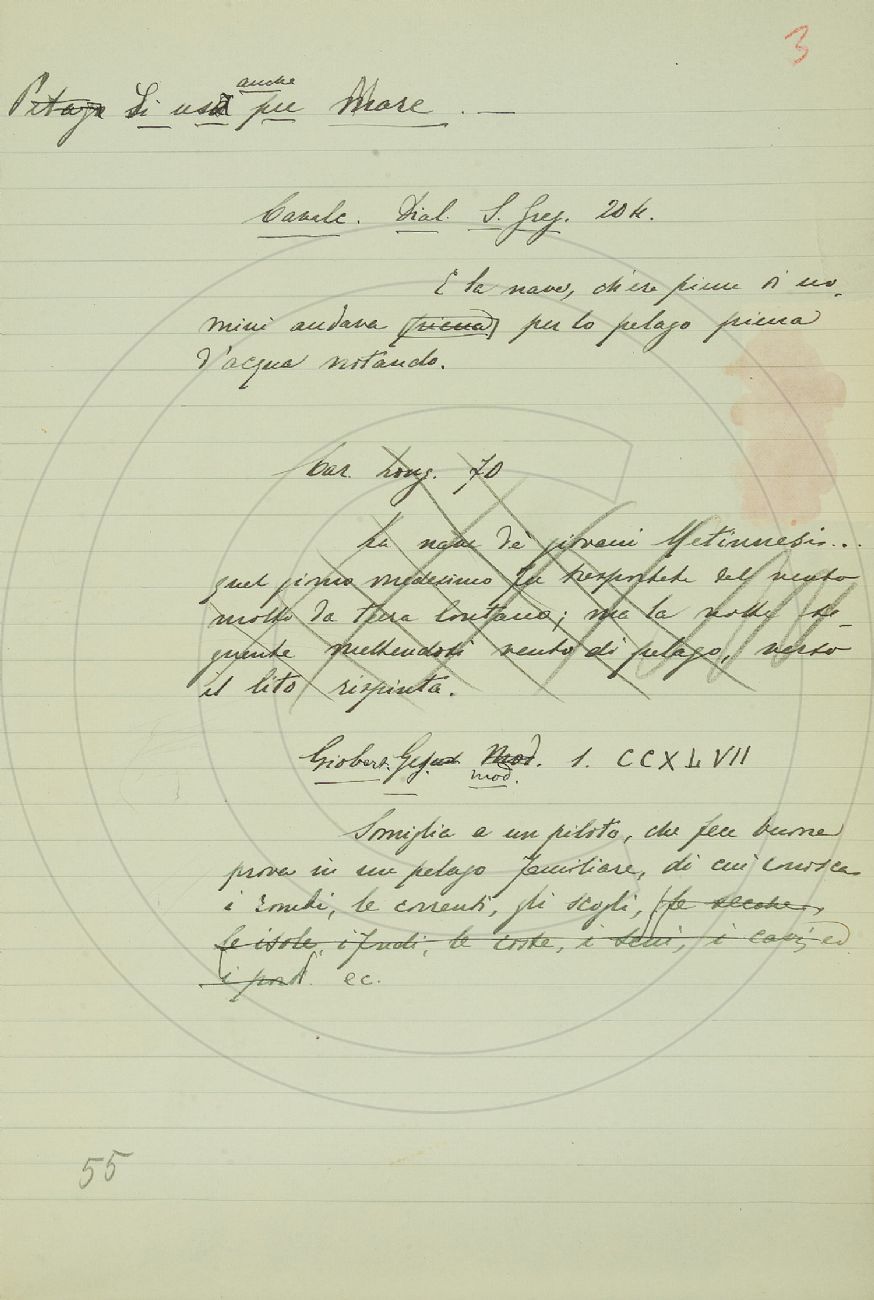 3
Pelago Si usa anche per Mare. —
Cavalc. Dial. S. Greg. 204.
E la nave, ch'era piena di uo-
mini andava piena per lo pelago piena
d'acqua notando.
Car. Long. 70
La nave de' giovani Metinnesi...
quel giorno medesimo fu trasportata dal vento
molto da terra lontano; ma la notte se-
guente mettendosi vento di pelago, verso
il lito rispinta.
Giobert. Ges. Mod. mod. 1. CCXLVII
Somiglia a un piloto, che fece buona
prova in un pelago familiare, di cui conosca
i rombi, le correnti, gli scogli, (le secche,
le isole, i fondi, le coste, i seni, i capi, ed
i porti. ec.
55